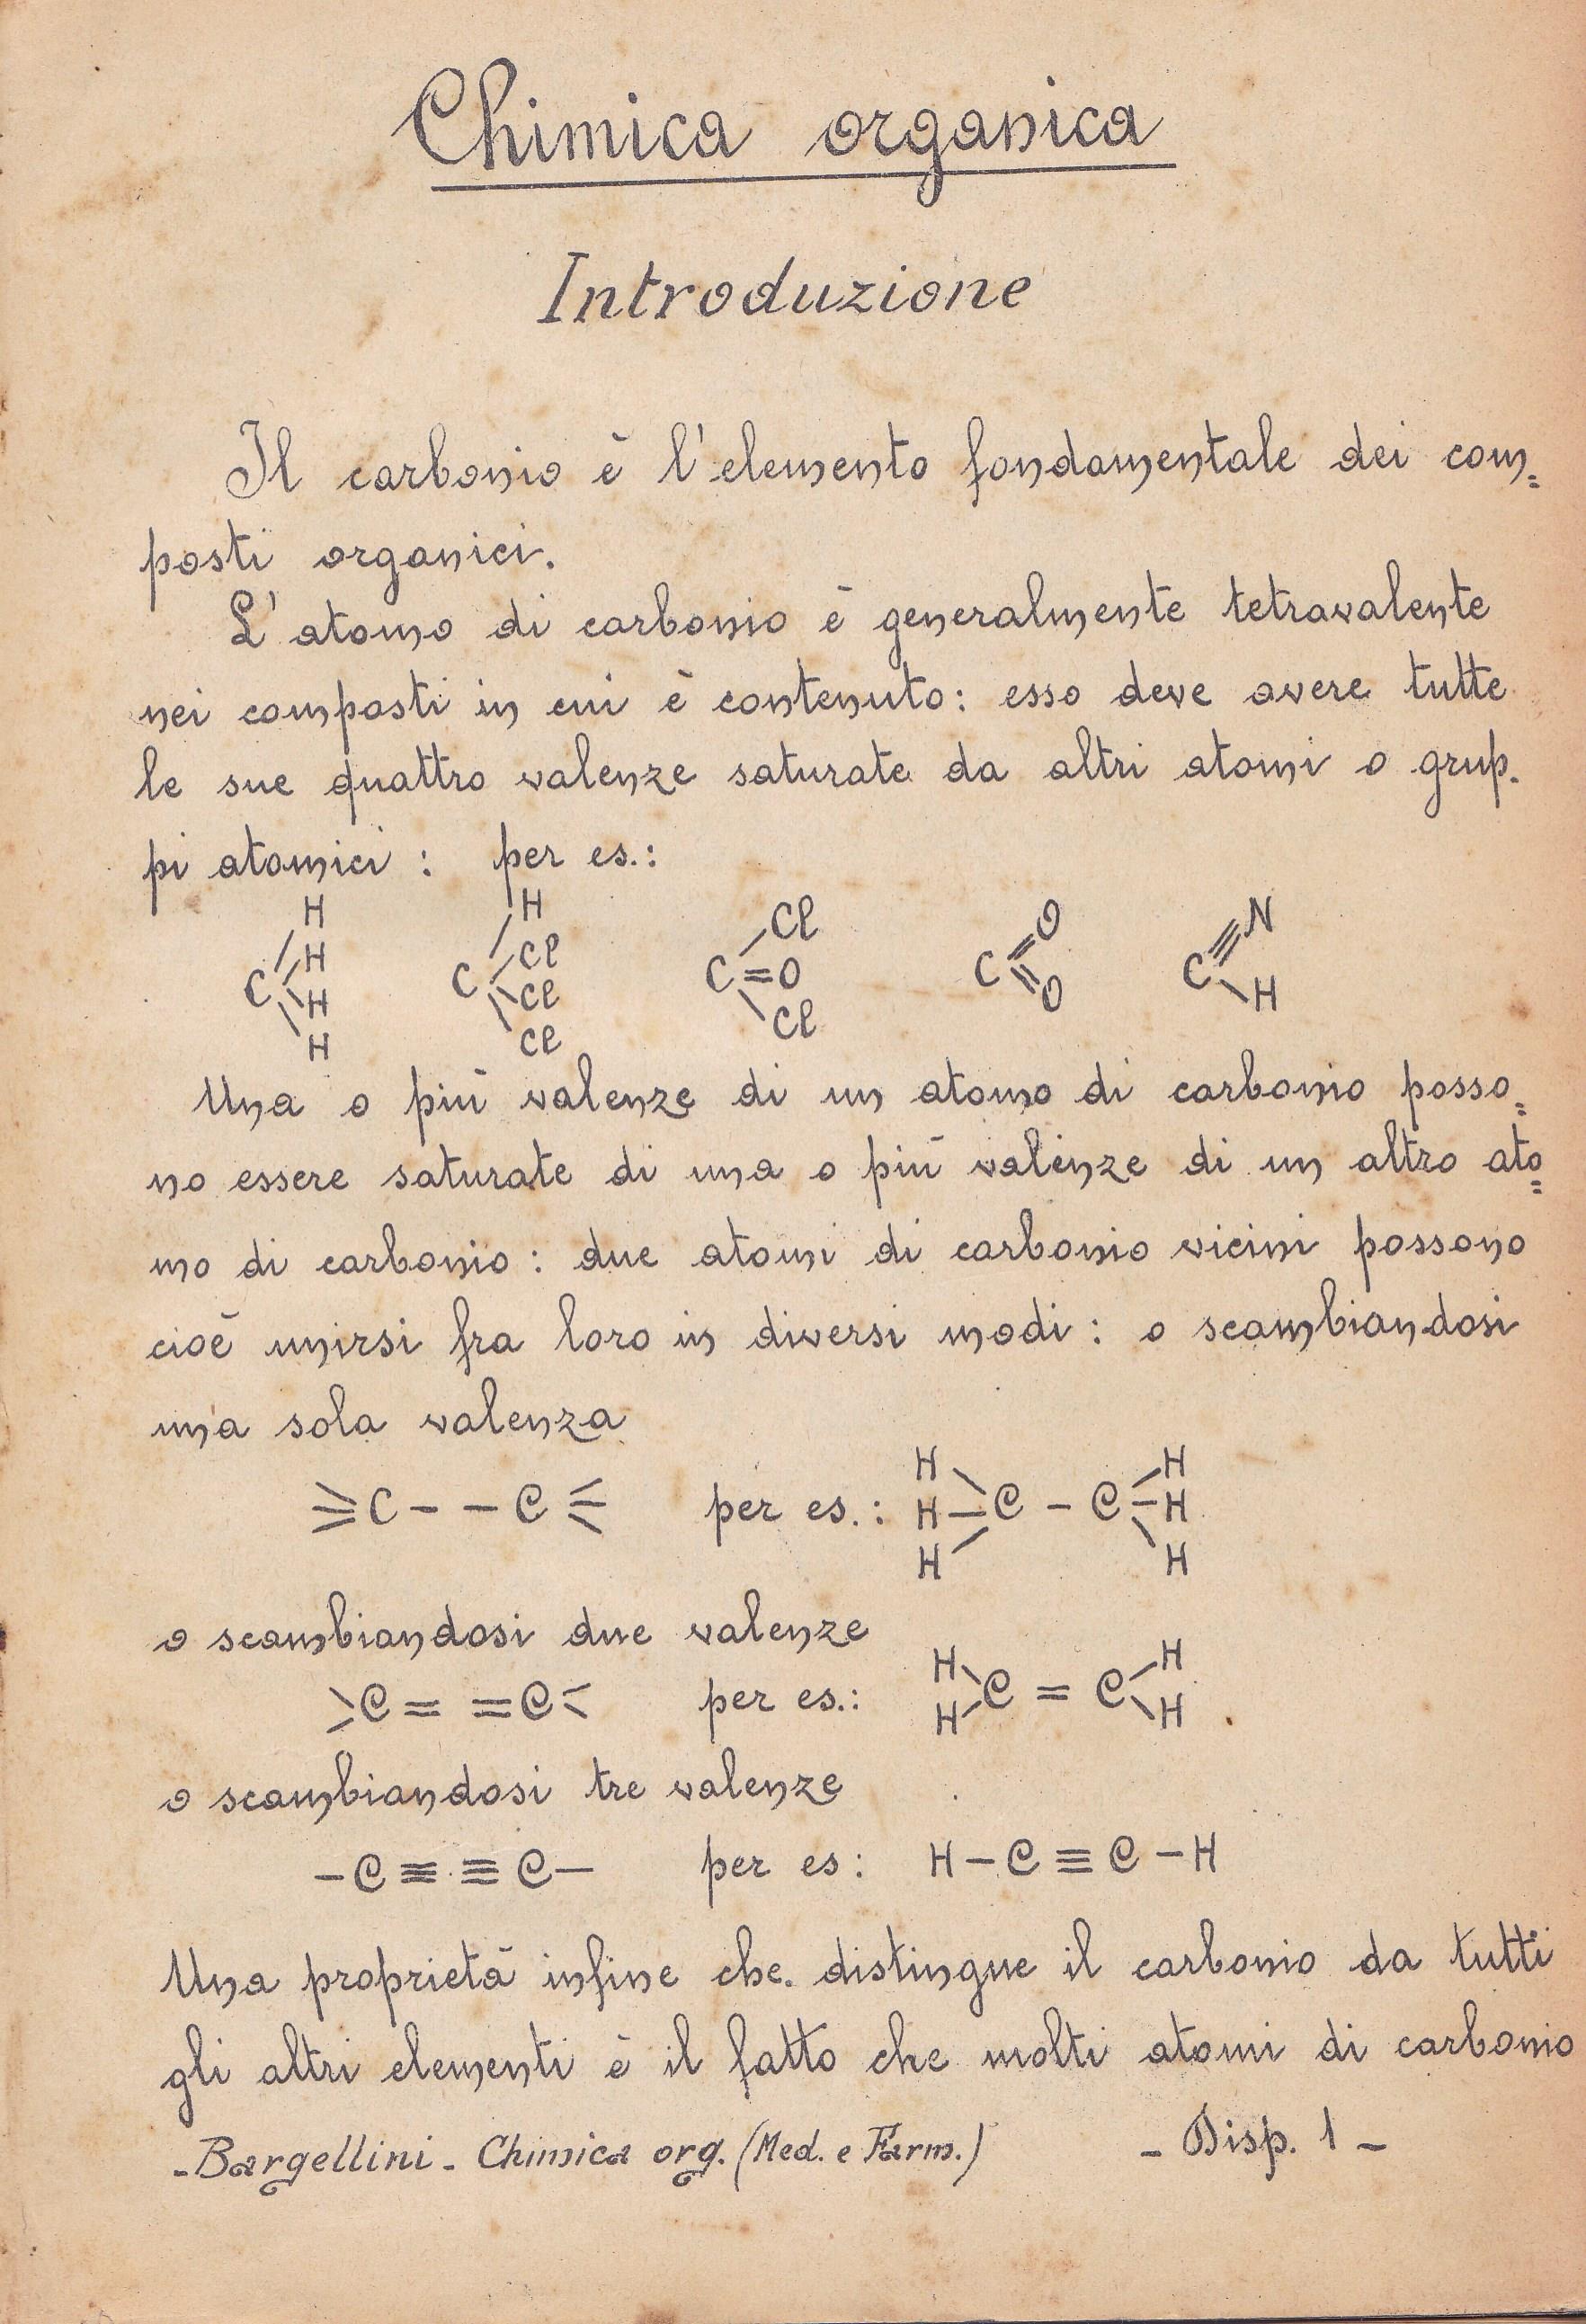 Chimica organica
Introduzione
Il carbonio è l'elemento fondamentale dei com=
posti organici.
L'atomo di carbonio è generalmente tetravalente
nei composti in cui è contenuto: esso deve avere tutte
le sue quattro valenze saturate da altri atomi o grup-
pi atomici: per es.:
H H Cl O N
H Cl
C C C=O C C
H Cl
H Cl Cl O H
Una o più valenze di un atomo di carbonio posso=
no essere saturate di una o più valenze di un altro ato=
mo di carbonio: due atomi di carbonio vicini possono
cioè unirsi fra loro in diversi modi: o scambiandosi
una sola valenza
H H
≥C- -C≤ per es.: H-C-C-H
H H
o scambiandosi due valenze
H H
>C= =C< per es.: C=C
H H
o scambiandosi tre valenze
-C≡ ≡C- per es: H-C≡C-H
Una proprietà infine che distingue il carbonio da tutti
gli altri elementi è il fatto che molti atomi di carbonio
- Bargellini - Chimica org. (Med. e Farm.) - Disp. 1 -